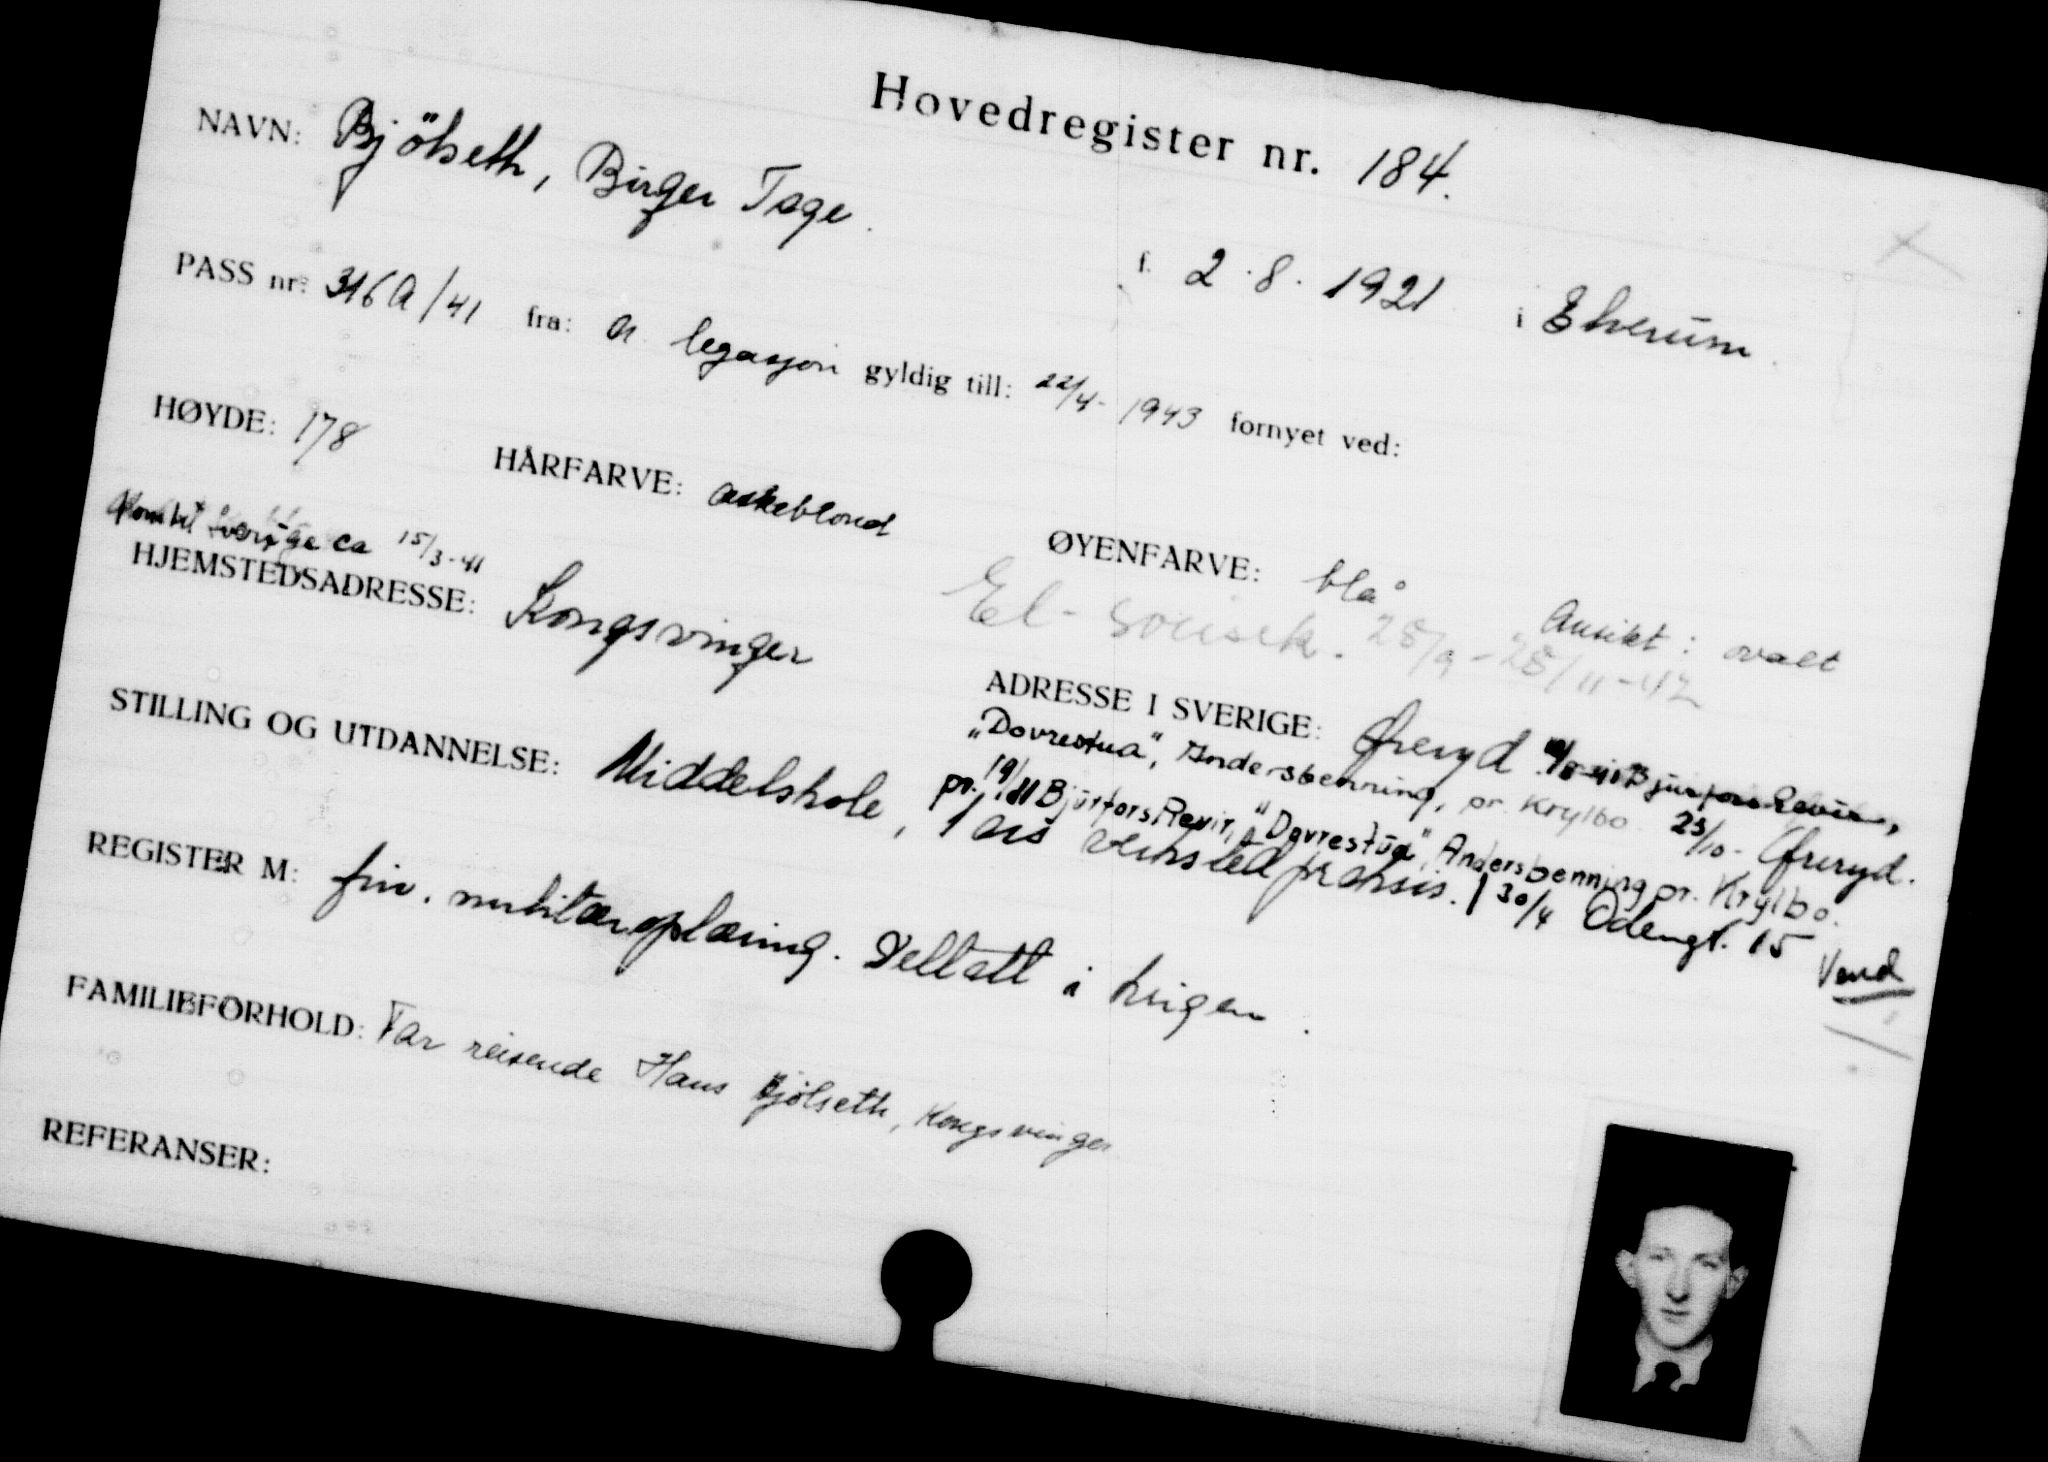 Hovedregister nr. 184.
NAVN: Bjölseth, Birger Tage.
f. 2.8.1921 i Elverum.
PASS nr: 316A/41 fra: N. legasjon gyldig till: 22/4-1943 fornyet ved:
HØYDE: 178 HÅRFARVE: askeblond ØYENFARVE: blå Ansikt: ovalt
Kom til Sverige ca 15/3-41
HJEMSTEDSADRESSE: Kongsvinger
El- 28/9-28/11-42
ADRESSE I SVERIGE: Öreryd Bjurfors Revir,
"Dovrestua", Andersbenning, pr. Krylbo. 23/10- Öreryd.
pr. 19/11 Bjurfors Revir, "Dovrestua", Andersbenning pr. Krylbo.
STILLING OG UTDANNELSE: Middelskole, 1 års verkstedpraksis. 30/4 Odengt. 15 Vend
REGISTER M: Ingen
militæropplæring. Deltatt i krigen.
FAMILIEFORHOLD: Far reisende Hans Bjölseth, Kongsvinger
REFERANSER: